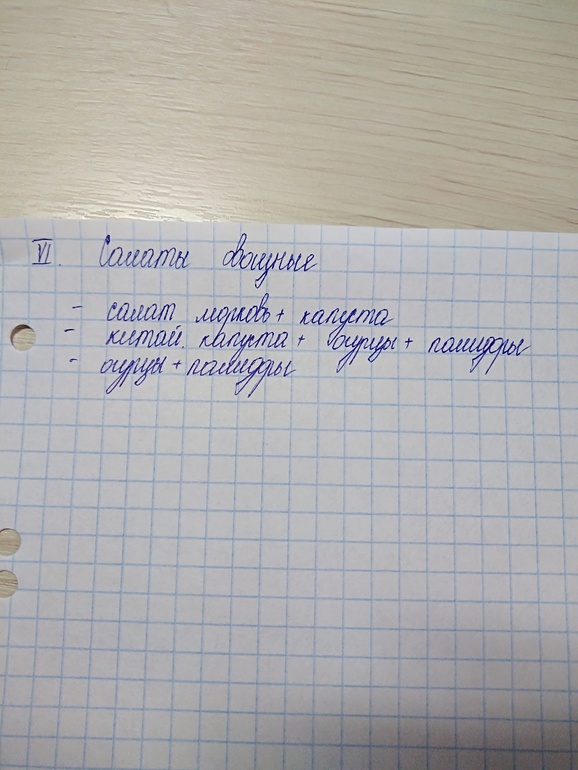 VI. Салаты овощные
- салат морковь + капуста
- китай. капуста + огурцы + помидоры
- огурцы + помидоры